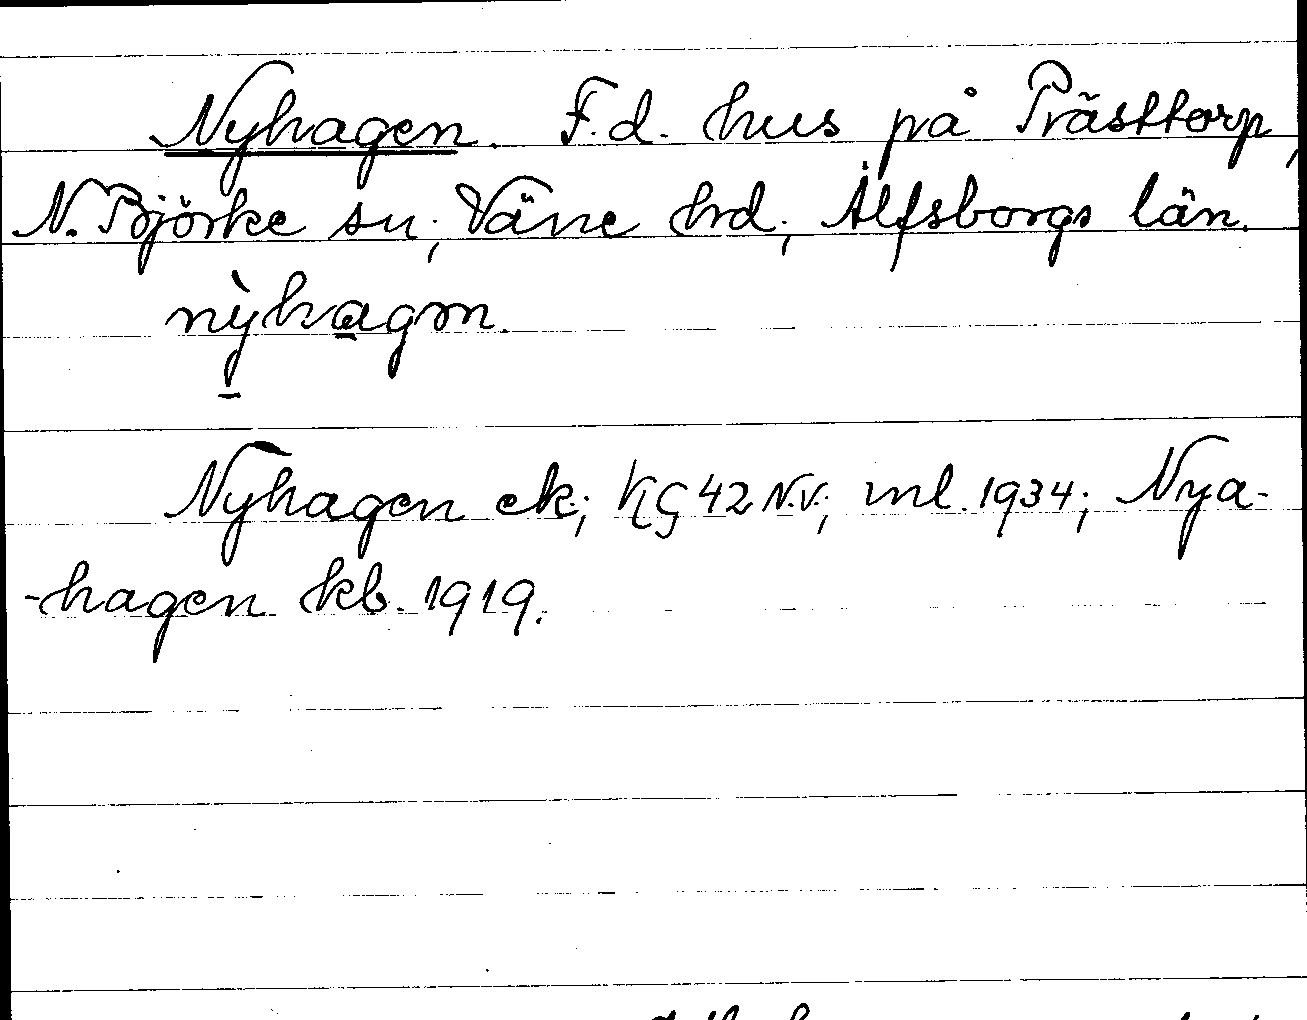 Nyhagen. F.d. hus på Prästtorp,
N. Björke sn, Väne hd, Älfsborgs län.
nỳhagm.
Nyhagen ek; KG 42 N.V.; ml. 1934; Nya-
-hagen kb. 1919.